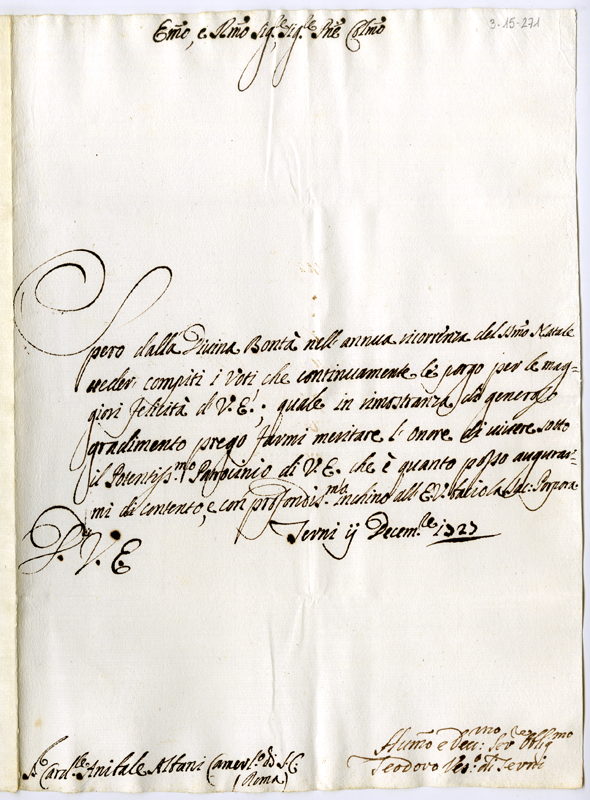 3-15-271
Emo, e Rmo Sig.re Sig.re Pne Colmo
Spero dalla Divina Bontà nell'annua ricorrenza del Smo Natale
veder compiti i Voti che continuamente le porgo per le mag=
giori felicità d V.E.; quale in rimostranza di generoso
gradimento prego farmi meritare l'onore di vivere sotto
il Potentiss.mo Patrocinio di V.E. che è quanto posso augurar=
mi di contento, e con profondis.mo Inchino all'E.V. bacio la Sac. Porpora
Terni ij Decem.re 1727
D. V. E
S.r Card.le Anibale Albani Camer.lo di S.C.
(Roma)
Humo e Dev.mo Ser.re Obligmo
Teodoro Ves.o di Terni